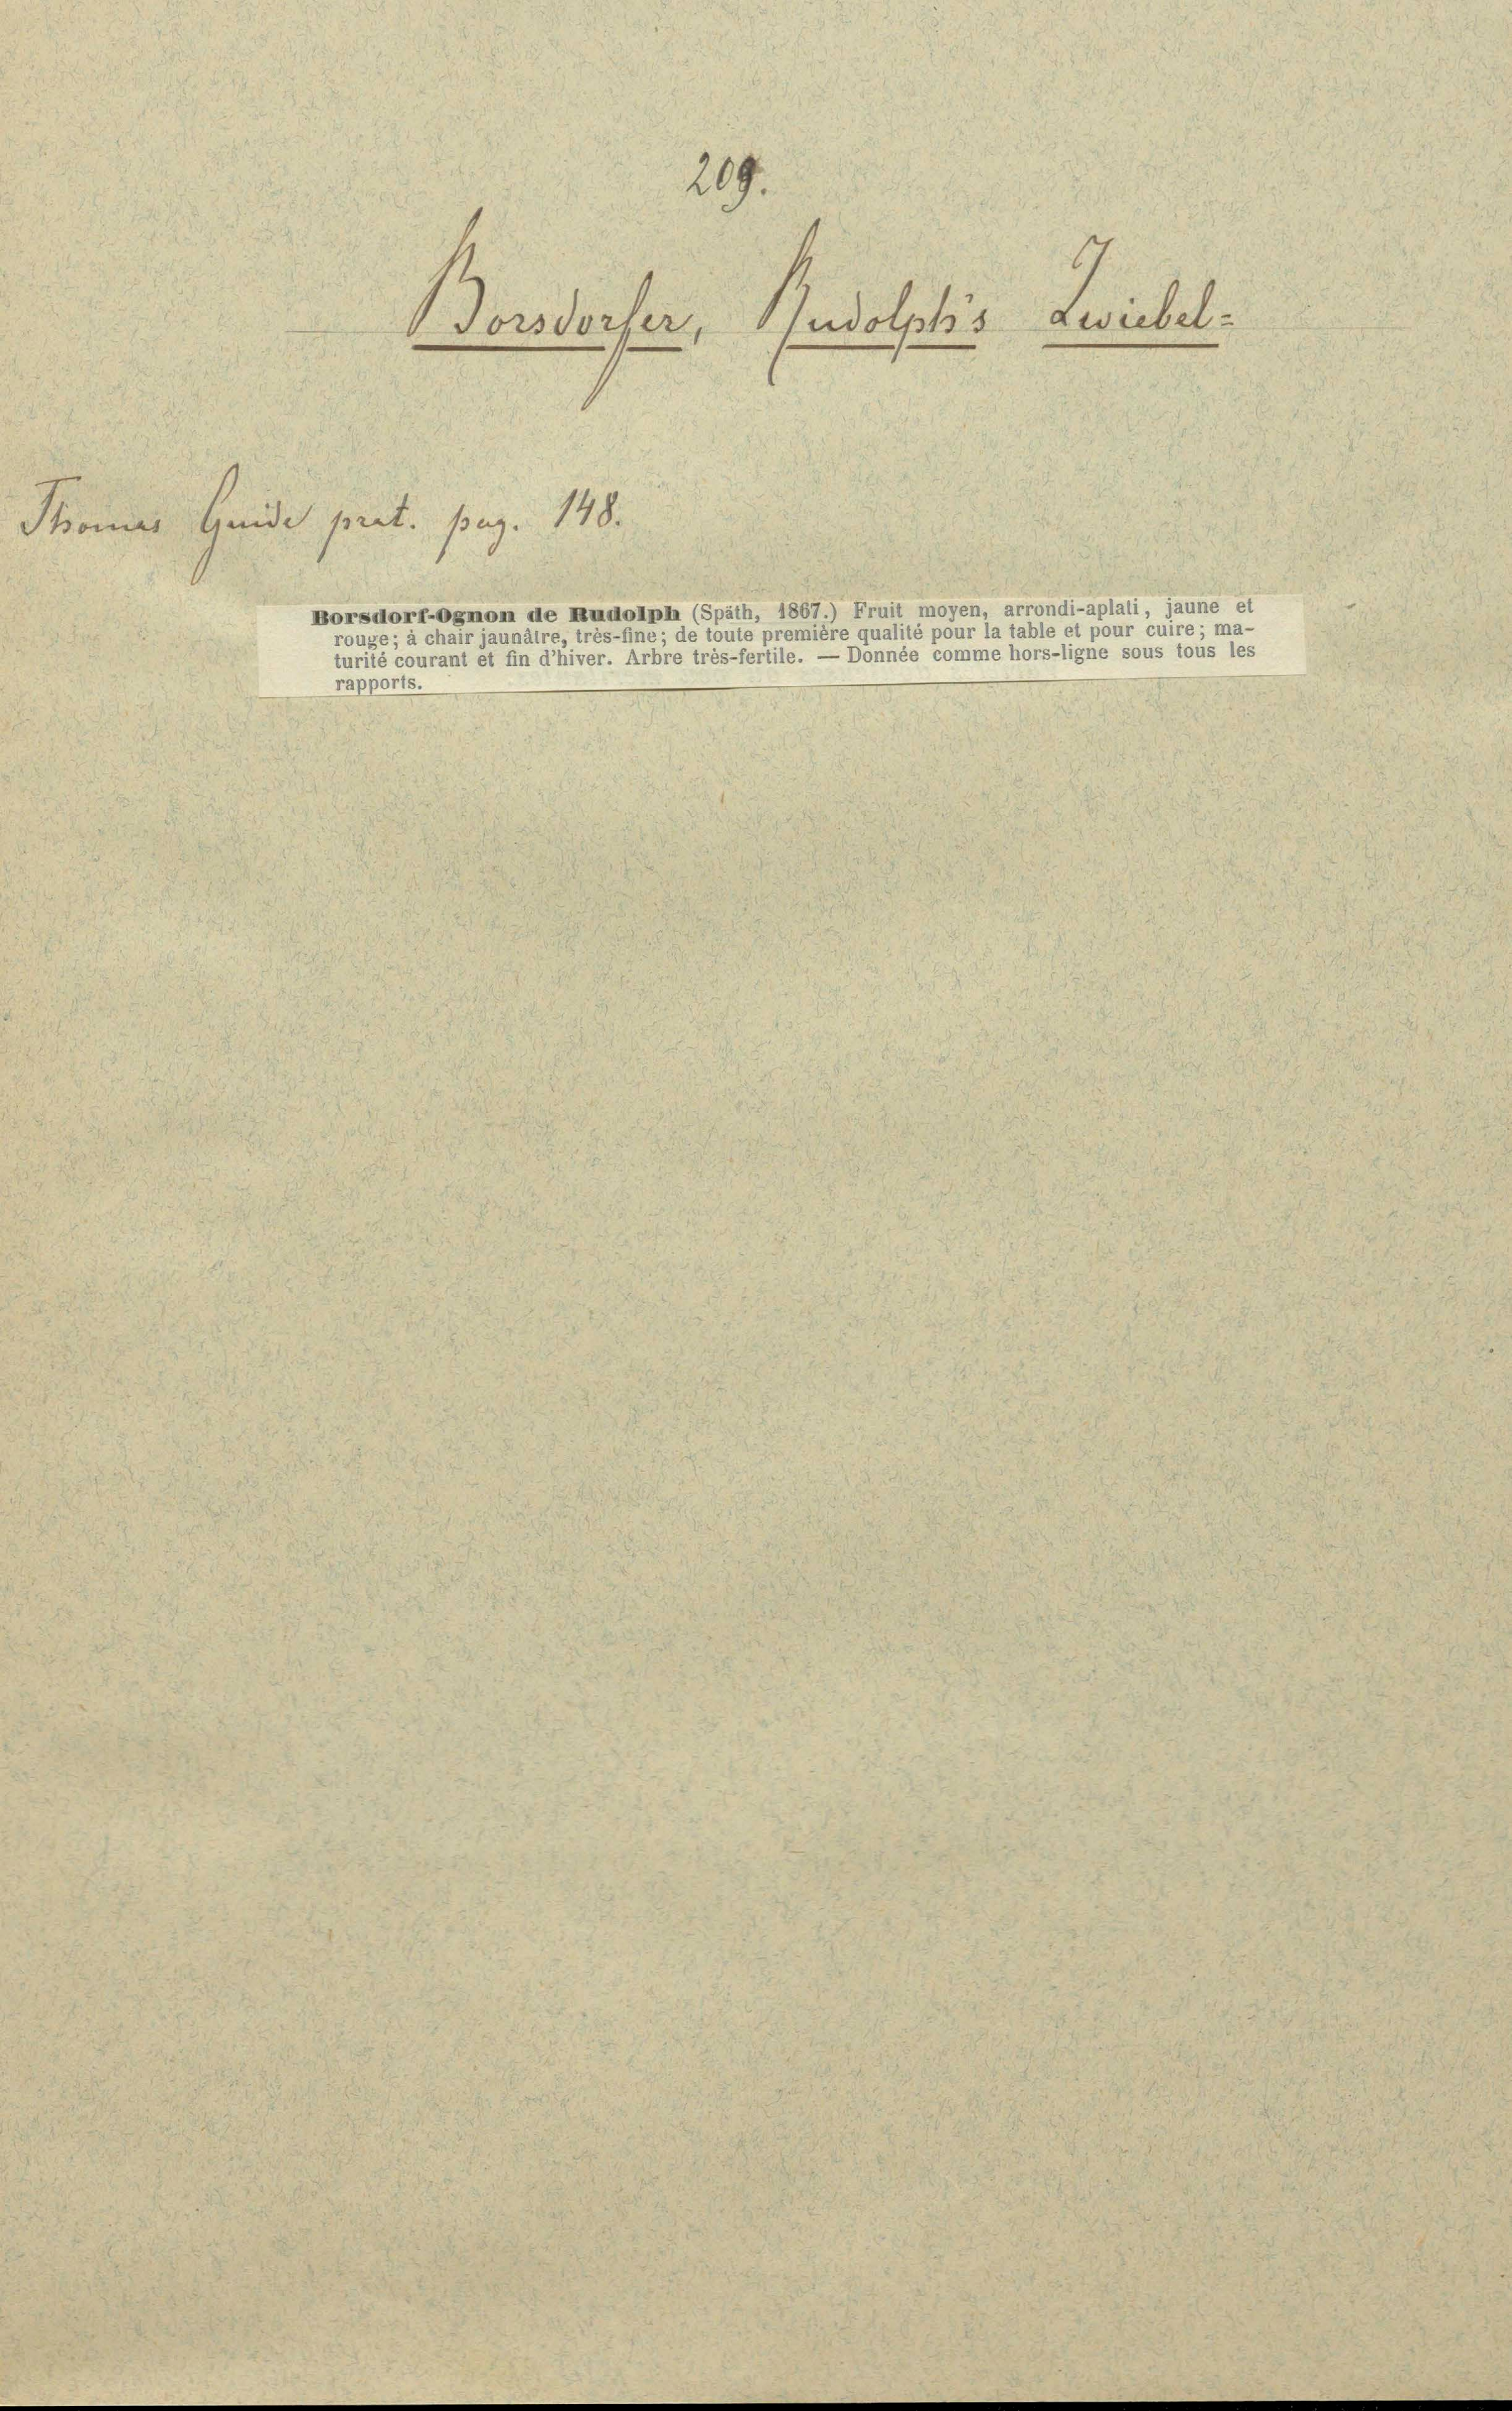 209.
Borsdorfer, Rudolph's Zwiebel=
Thomas Guide prat. pag. 148.
Borsdorf-Ognon de Rudolph (Späth, 1867.) Fruit moyen, arrondi-aplati, jaune et
rouge; à chair jaunâtre, très-fine; de toute première qualité pour la table et pour cuire; ma-
turité courant et fin d'hiver. Arbre très-fertile. — Donnée comme hors-ligne sous tous les
rapports.